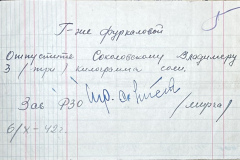 Г-же Фуркаловой
Отпустите Соколовскому Владимеру
3 (три) килограмма соли.
Зав ФЗО
6/X - 42 г.